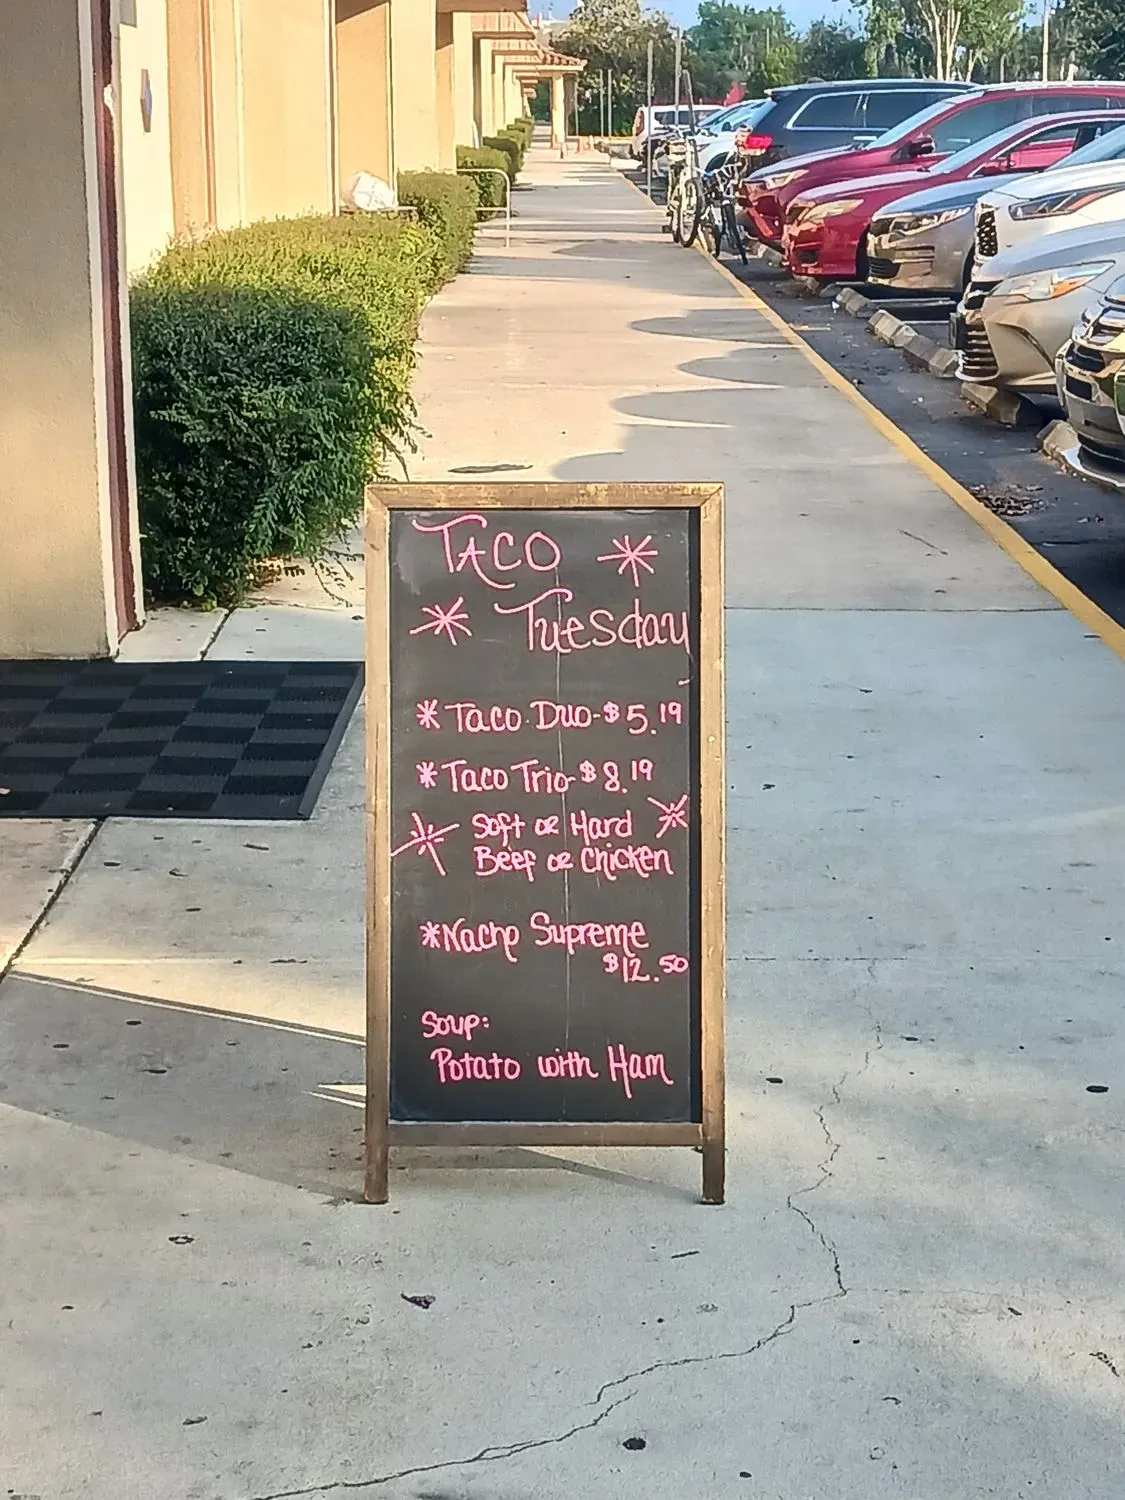 TACO
Tuesday
* Taco Duo - $5.19
* Taco Trio - $8.19
Soft or Hard
Beef or Chicken
* Nacho Supreme
$12.50
Soup:
Potato with Ham